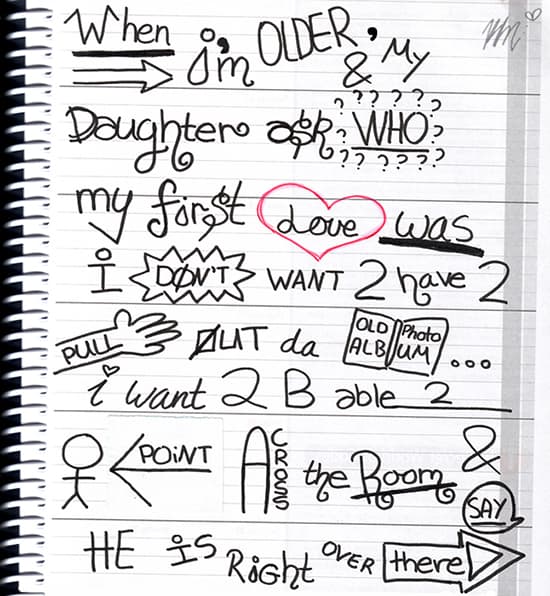 When i'm OLDER, & My
Daughter ask ? ? ? ? ? ? WHO ? ? ? ? ? ? ?
my first Love was
i DON'T WANT 2 have 2
PULL OUT da OLD ALBUM Photo ...
i want 2 B able 2
POiNT ACROSS the Room &
SAY
HE iS Right OVER there